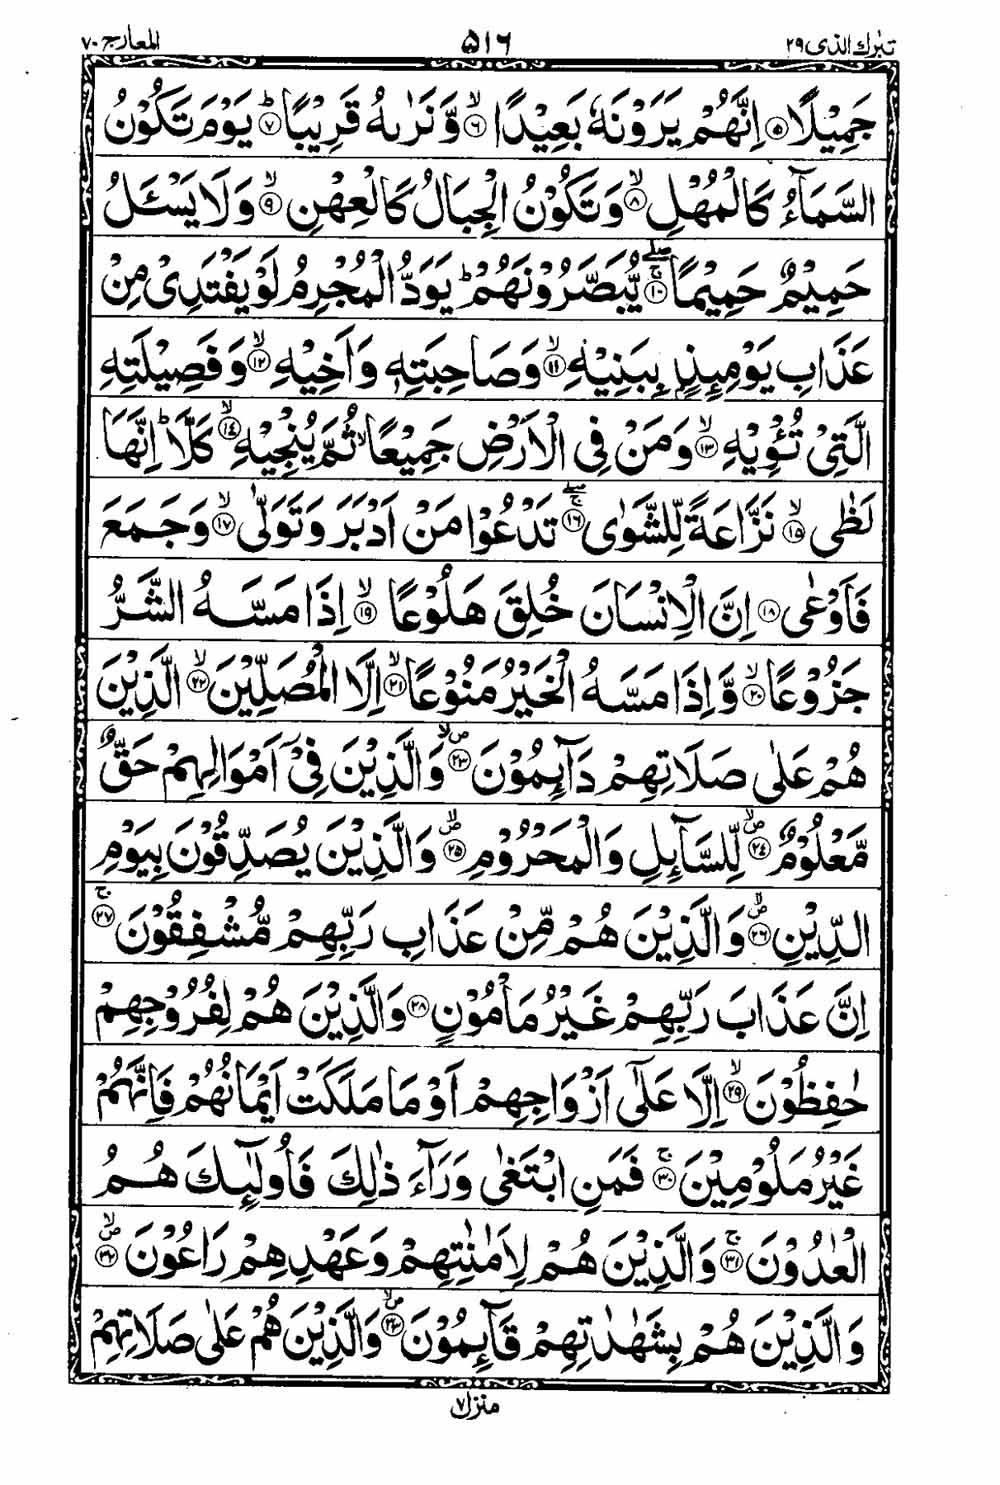 تبٰرك الذی ٢٩ ۵۱۶ المعارج ٧٠
جَمِيْلًا ۝٥ اِنَّهُمْ يَرَوْنَهٗ بَعِيْدًا ۙ۝٦ وَّنَرٰىهُ قَرِيْبًا ؕ۝٧ يَوْمَ تَكُوْنُ
السَّمَآءُ كَالْمُهْلِ ۙ۝٨ وَتَكُوْنُ الْجِبَالُ كَالْعِهْنِ ۙ۝٩ وَلَا يَسْـَٔلُ
حَمِيْمٌ حَمِيْمًا ۚۖ۝١٠ يُّبَصَّرُوْنَهُمْ ؕ يَوَدُّ الْمُجْرِمُ لَوْ يَفْتَدِىْ مِنْ
عَذَابِ يَوْمِئِذٍۭ بِبَنِيْهِ ۙ۝١١ وَصَاحِبَتِهٖ وَاَخِيْهِ ۙ۝١٢ وَفَصِيْلَتِهِ
الَّتِىْ تُـْٔوِيْهِ ۙ۝١٣ وَمَنْ فِى الْاَرْضِ جَمِيْعًا ۙ ثُمَّ يُنْجِيْهِ ۙ۝١٤ كَلَّا ؕ اِنَّهَا
لَظٰى ۙ۝١٥ نَزَّاعَةً لِّلشَّوٰى ۚۖ۝١٦ تَدْعُوْا مَنْ اَدْبَرَ وَتَوَلّٰى ۙ۝١٧ وَجَمَعَ
فَاَوْعٰى ۝١٨ اِنَّ الْاِنْسَانَ خُلِقَ هَلُوْعًا ۙ۝١٩ اِذَا مَسَّهُ الشَّرُّ
جَزُوْعًا ۙ۝٢٠ وَّاِذَا مَسَّهُ الْخَيْرُ مَنُوْعًا ۙ۝٢١ اِلَّا الْمُصَلِّيْنَ ۙ۝٢٢ الَّذِيْنَ
هُمْ عَلٰى صَلَاتِهِمْ دَآئِمُوْنَ ۪ۙ۝٢٣ وَالَّذِيْنَ فِىْۤ اَمْوَالِهِمْ حَقٌّ
مَّعْلُوْمٌ ۪ۙ۝٢٤ لِّلسَّآئِلِ وَالْمَحْرُوْمِ ۪ۙ۝٢٥ وَالَّذِيْنَ يُصَدِّقُوْنَ بِيَوْمِ
الدِّيْنِ ۪ۙ۝٢٦ وَالَّذِيْنَ هُمْ مِّنْ عَذَابِ رَبِّهِمْ مُّشْفِقُوْنَ ۚ۝٢٧
اِنَّ عَذَابَ رَبِّهِمْ غَيْرُ مَاْمُوْنٍ ۝٢٨ وَالَّذِيْنَ هُمْ لِفُرُوْجِهِمْ
حٰفِظُوْنَ ۙ۝٢٩ اِلَّا عَلٰٓى اَزْوَاجِهِمْ اَوْ مَا مَلَكَتْ اَيْمَانُهُمْ فَاِنَّهُمْ
غَيْرُ مَلُوْمِيْنَ ۚ۝٣٠ فَمَنِ ابْتَغٰى وَرَآءَ ذٰلِكَ فَاُولٰٓئِكَ هُمُ
الْعٰدُوْنَ ۚ۝٣١ وَالَّذِيْنَ هُمْ لِاَمٰنٰتِهِمْ وَعَهْدِهِمْ رَاعُوْنَ ۪ۙ۝٣٢
وَالَّذِيْنَ هُمْ بِشَهٰدٰتِهِمْ قَآئِمُوْنَ ۪ۙ۝٣٣ وَالَّذِيْنَ هُمْ عَلٰى صَلَاتِهِمْ
منزل ٧